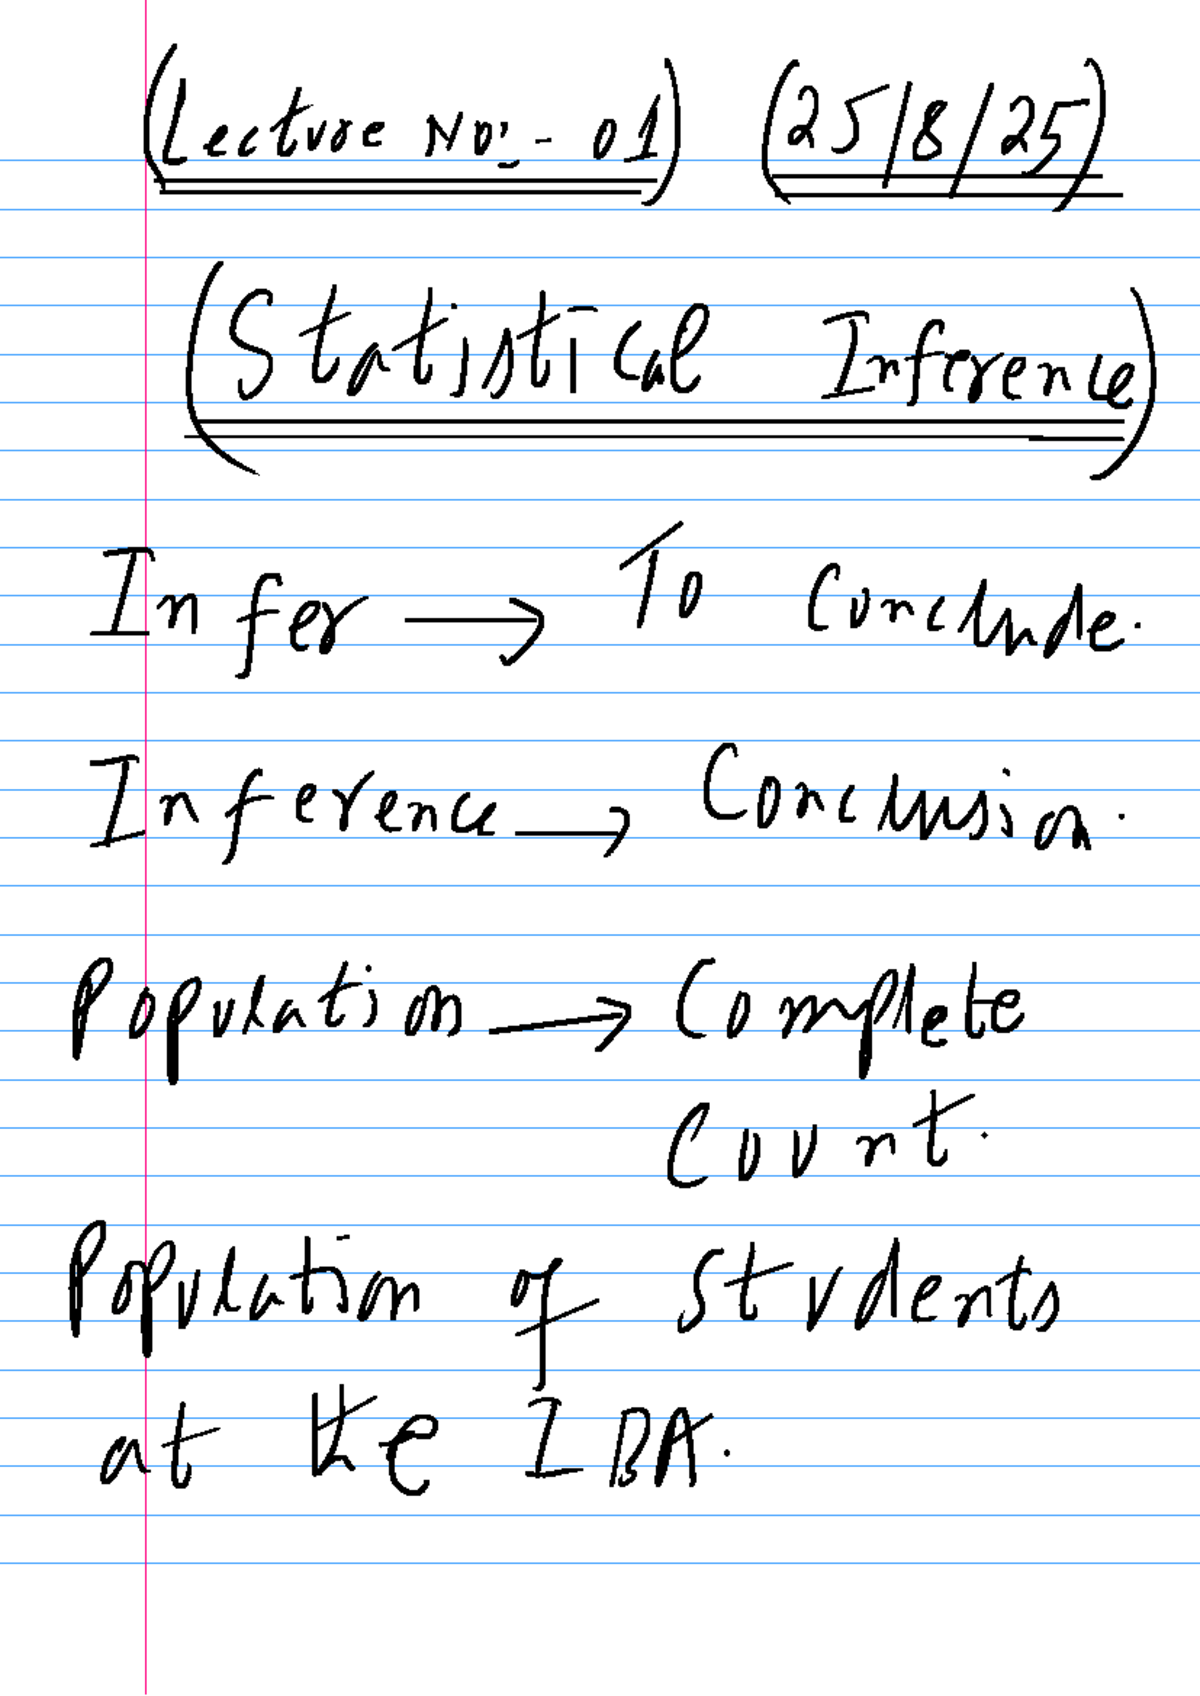 (Lecture No:- 01) (25/8/25)
(Statistical Inference)
Infer → To Conclude.
Inference → Conclusion.
Population → Complete
Count.
Population of Students
at the IBA.